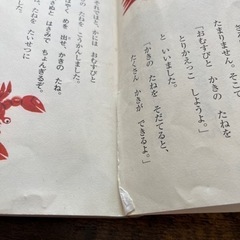 たまりません。そこで
「おむすびと
かきの たねを
とりかえっこ しようよ。」
と いいました。
「かきの たねを そだてると、
たくさん かきが できるよ。」
それではと、かには おむすびと
かきの たねを こうかんしました。
めを 出せ、かきの たね。
はさみで ちょんぎるぞ。
たねを たいせつに